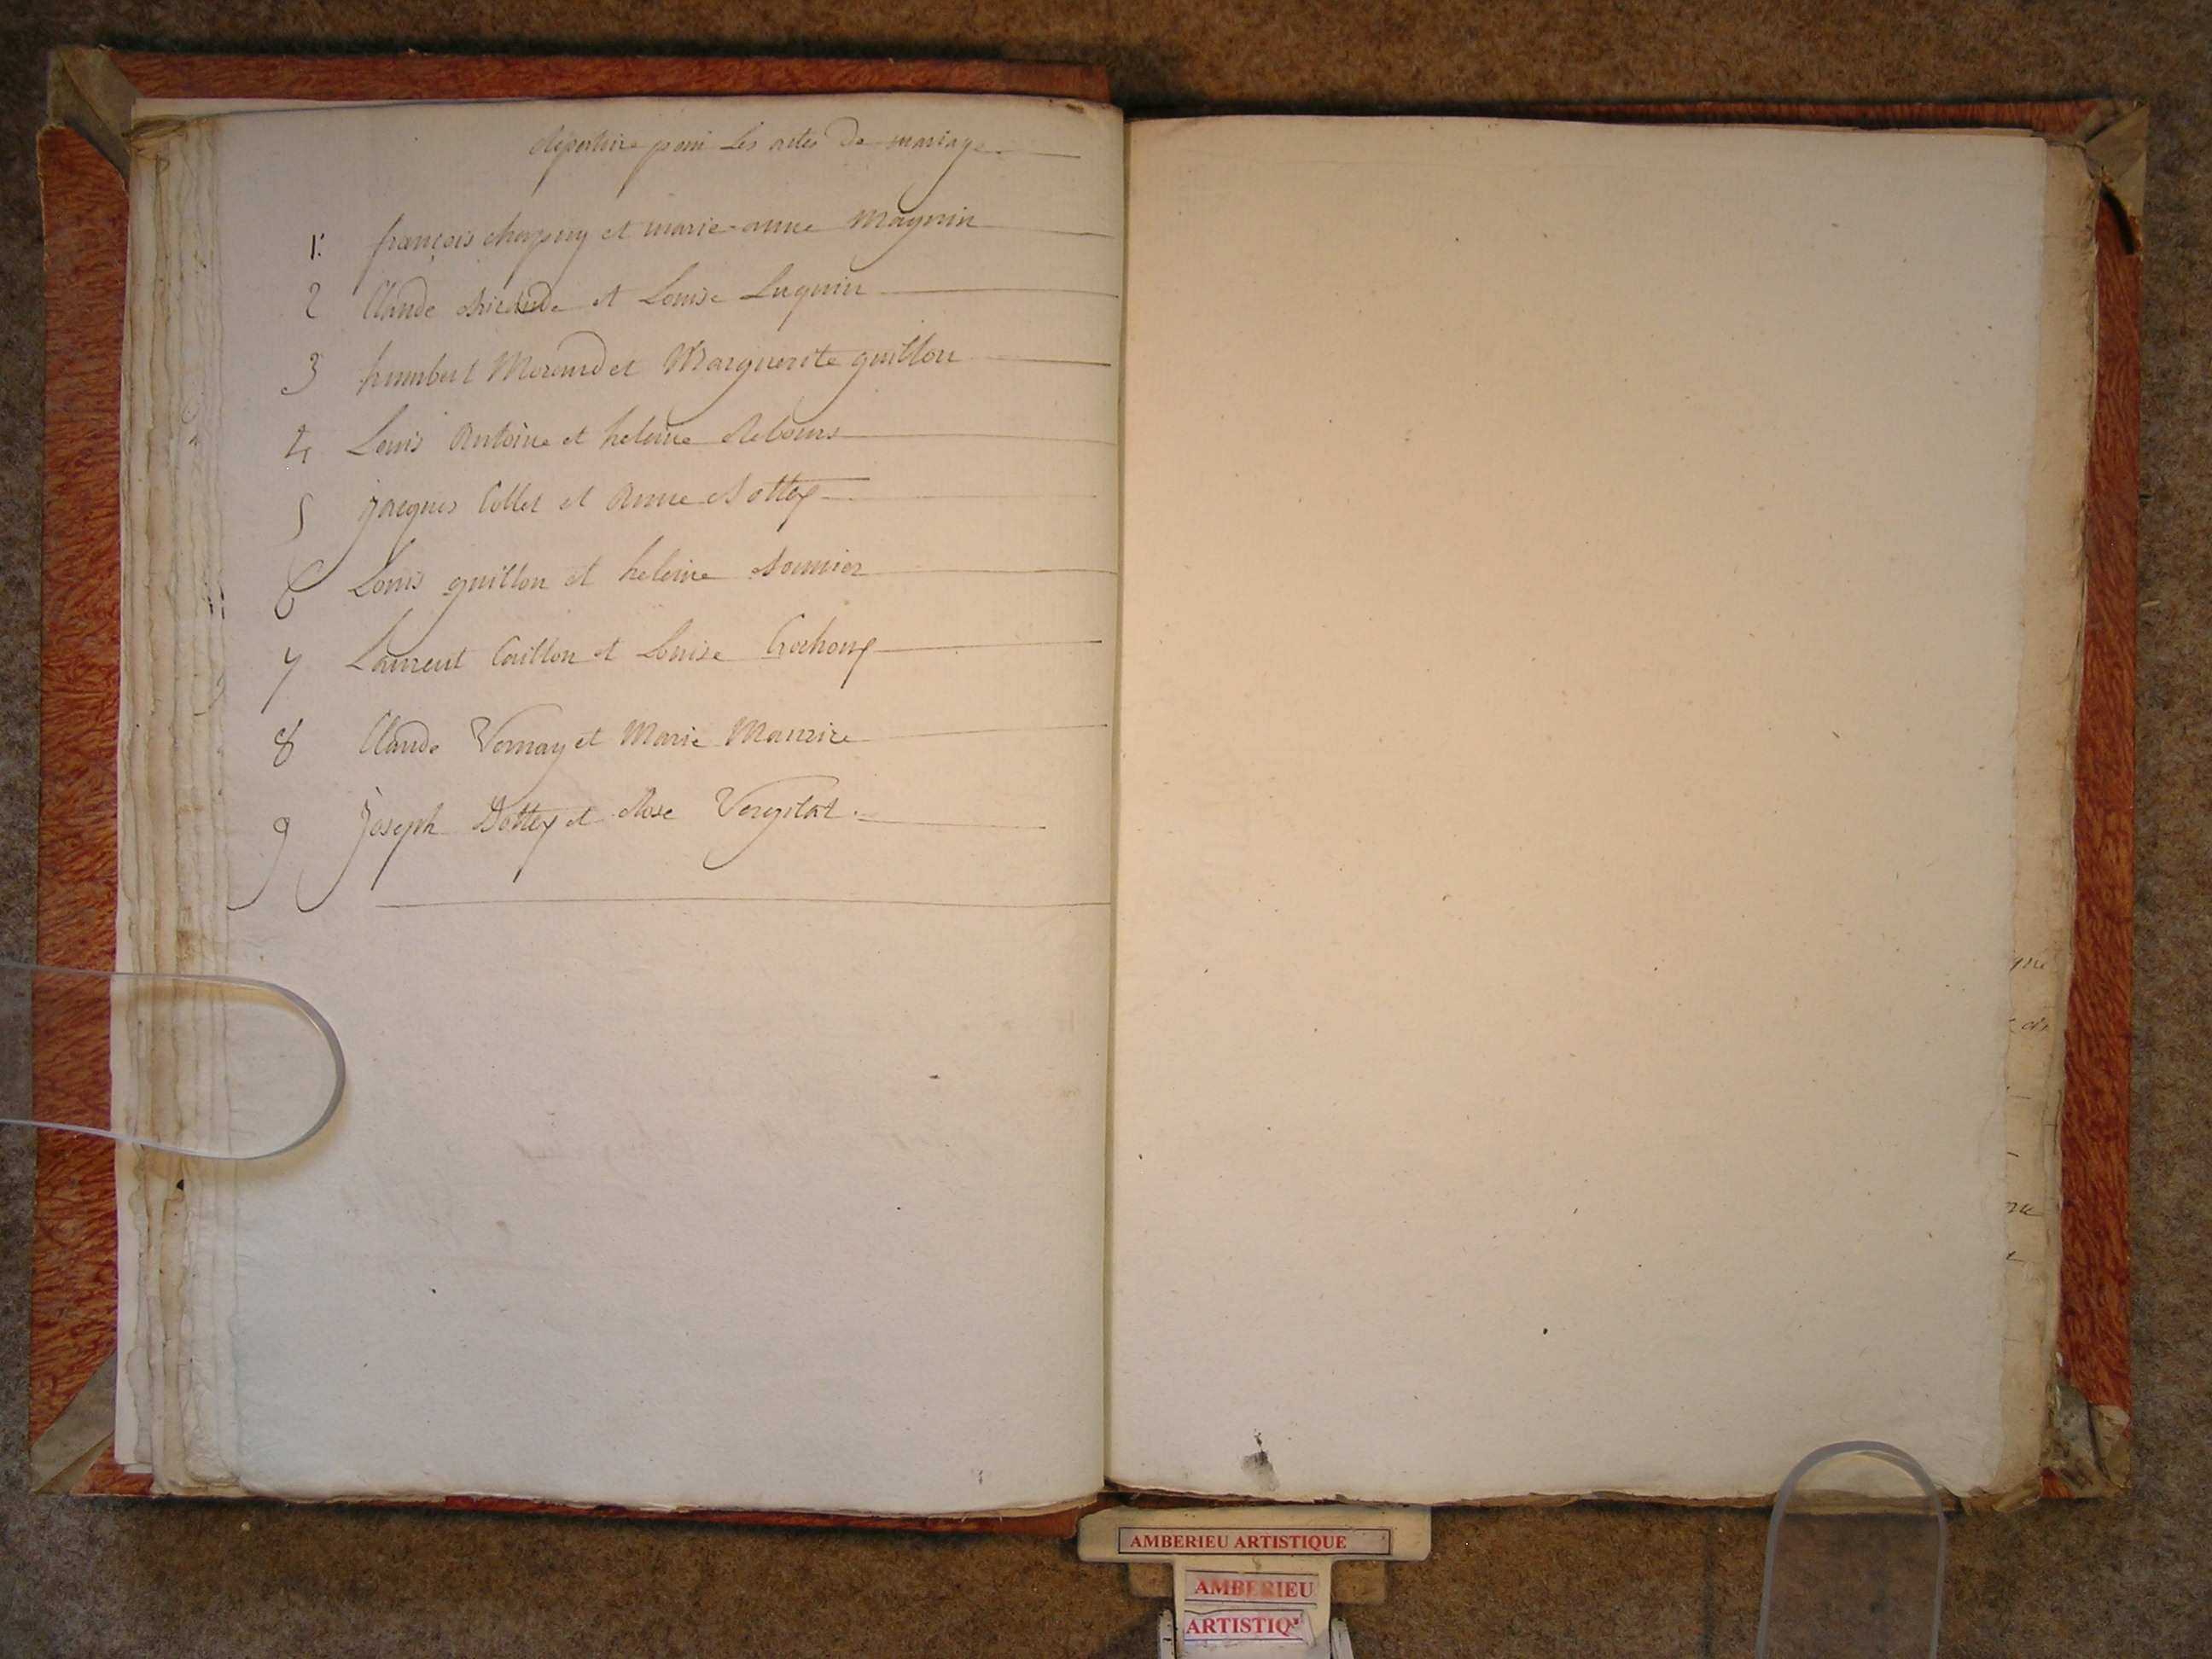 répertoire pour les actes de mariage
1. françois chapuy et marie-anne Magnin
2 Claude et Louise Luquin
3 humbert Moraud et Marguerite guillon
4 Louis Antoine et heleine Rebours
5 jacques Collet et Anne Dottex
6 Louis guillon et heleine
7 Laurent Caillon et Louise
8 Claude Vernay et Marie
9 joseph Dottex et Rose
AMBERIEU ARTISTIQUE
AMBERIEU
ARTISTIQ